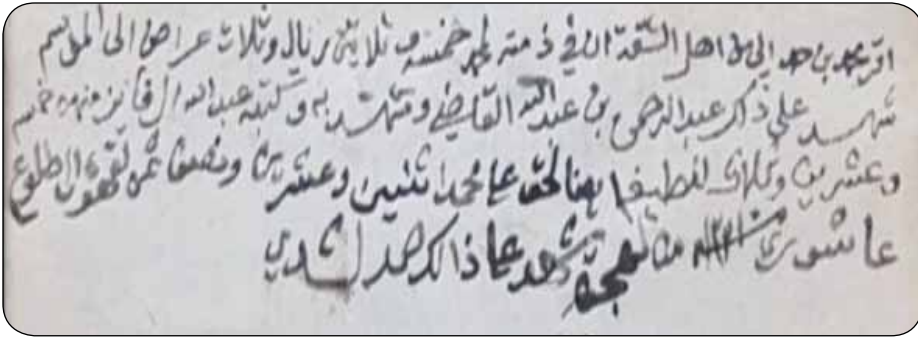 اقر محمد بن حمد اهل الشقة ان في ذمته لمحمد خمسه و ثلاثين ريال وثلاث عراص الى الموسم
شهد علي ذاكر عبدالرحمن بن عبدالله القاضي وشهد به وكتبه عبدالله ال فايز منهن خمس
وعشرين وثلاث لفطيم ايضا لحق علي محمد اثنين وعشرين ونصف ثمن الطلوع
عاشوري من شهد علي ذالك حمد الشدي